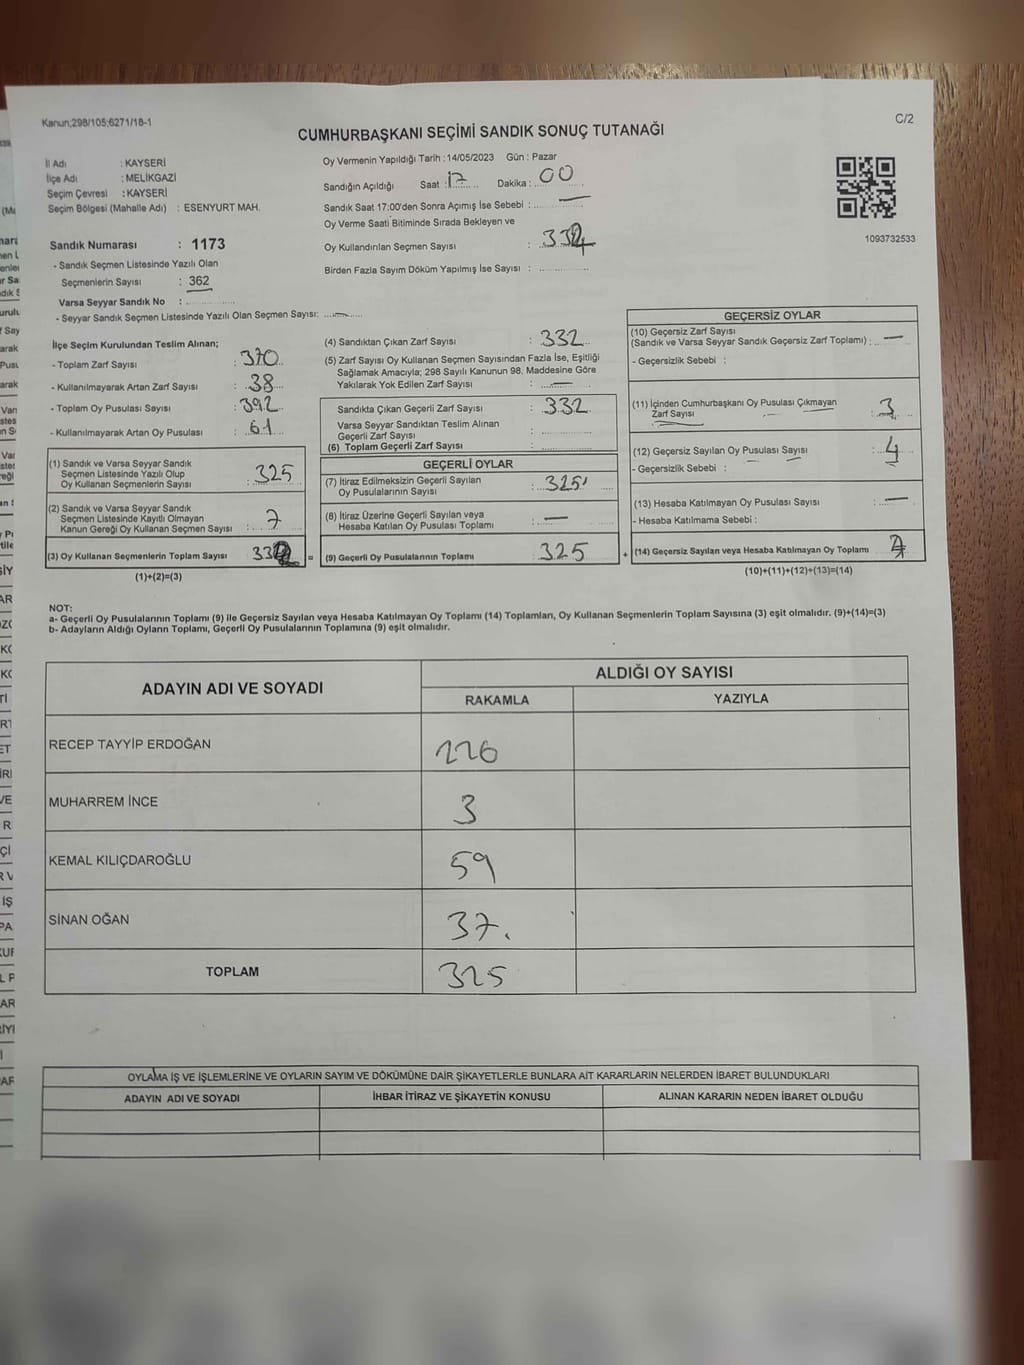 Kanun;298/105;6271/18-1
C/2
CUMHURBAŞKANI SEÇİMİ SANDIK SONUÇ TUTANAĞI
İl Adı : KAYSERİ
İlçe Adı : MELİKGAZİ
Seçim Çevresi : KAYSERİ
Seçim Bölgesi (Mahalle Adı) : ESENYURT MAH.
Oy Vermenin Yapıldığı Tarih : 14/05/2023 Gün : Pazar
Sandığın Açıldığı Saat : 17 Dakika : 00
Sandık Saat 17:00'den Sonra Açımış İse Sebebi : —
Oy Verme Saati Bitiminde Sırada Bekleyen ve
Oy Kullandırılan Seçmen Sayısı :
Birden Fazla Sayım Döküm Yapılmış İse Sayısı :
1093732533
Sandık Numarası : 1173
- Sandık Seçmen Listesinde Yazılı Olan
Seçmenlerin Sayısı : 362
Varsa Seyyar Sandık No :
- Seyyar Sandık Seçmen Listesinde Yazılı Olan Seçmen Sayısı: —
İlçe Seçim Kurulundan Teslim Alınan;
- Toplam Zarf Sayısı : 370
- Kullanılmayarak Artan Zarf Sayısı : 38
- Toplam Oy Pusulası Sayısı : 392
- Kullanılmayarak Artan Oy Pusulası : 61
(1) Sandık ve Varsa Seyyar Sandık
Seçmen Listesinde Yazılı Olup
Oy Kullanan Seçmenlerin Sayısı : 325
(2) Sandık ve Varsa Seyyar Sandık
Seçmen Listesinde Kayıtlı Olmayan
Kanun Gereği Oy Kullanan Seçmen Sayısı : 7
(3) Oy Kullanan Seçmenlerin Toplam Sayısı 332 =
(1)+(2)=(3)
(4) Sandıktan Çıkan Zarf Sayısı : 332
(5) Zarf Sayısı Oy Kullanan Seçmen Sayısından Fazla İse, Eşitliği
Sağlamak Amacıyla; 298 Sayılı Kanunun 98. Maddesine Göre
Yakılarak Yok Edilen Zarf Sayısı : —
Sandıkta Çıkan Geçerli Zarf Sayısı : 332
Varsa Seyyar Sandıktan Teslim Alınan
Geçerli Zarf Sayısı :
(6) Toplam Geçerli Zarf Sayısı :
GEÇERLİ OYLAR
(7) İtiraz Edilmeksizin Geçerli Sayılan
Oy Pusulalarının Sayısı : 325
(8) İtiraz Üzerine Geçerli Sayılan veya
Hesaba Katılan Oy Pusulası Toplamı : —
(9) Geçerli Oy Pusulalarının Toplamı 325 +
GEÇERSİZ OYLAR
(10) Geçersiz Zarf Sayısı
(Sandık ve Varsa Seyyar Sandık Geçersiz Zarf Toplamı) : —
- Geçersizlik Sebebi :
(11) İçinden Cumhurbaşkanı Oy Pusulası Çıkmayan
Zarf Sayısı : 3
(12) Geçersiz Sayılan Oy Pusulası Sayısı : 4
- Geçersizlik Sebebi :
(13) Hesaba Katılmayan Oy Pusulası Sayısı : —
- Hesaba Katılmama Sebebi :
(14) Geçersiz Sayılan veya Hesaba Katılmayan Oy Toplamı 7
(10)+(11)+(12)+(13)=(14)
NOT:
a- Geçerli Oy Pusulalarının Toplamı (9) ile Geçersiz Sayılan veya Hesaba Katılmayan Oy Toplamı (14) Toplamları, Oy Kullanan Seçmenlerin Toplam Sayısına (3) eşit olmalıdır. (9)+(14)=(3)
b- Adayların Aldığı Oyların Toplamı, Geçerli Oy Pusulalarının Toplamına (9) eşit olmalıdır.
ADAYIN ADI VE SOYADI
ALDIĞI OY SAYISI
RAKAMLA YAZIYLA
RECEP TAYYİP ERDOĞAN 226
MUHARREM İNCE 3
KEMAL KILIÇDAROĞLU 59
SİNAN OĞAN 37.
TOPLAM 325
OYLAMA İŞ VE İŞLEMLERİNE VE OYLARIN SAYIM VE DÖKÜMÜNE DAİR ŞİKAYETLERLE BUNLARA AİT KARARLARIN NELERDEN İBARET BULUNDUKLARI
ADAYIN ADI VE SOYADI İHBAR İTİRAZ VE ŞİKAYETİN KONUSU ALINAN KARARIN NEDEN İBARET OLDUĞU